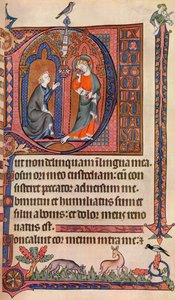 ut non delinquam in lingua mea.
Posui ori meo custodiam: cū con
sisteret peccator adversum me.
Obmutui et humiliatus sum et
silui a bonis: et dolor meus reno
vatus est.
Concaluit cor meum intra me: